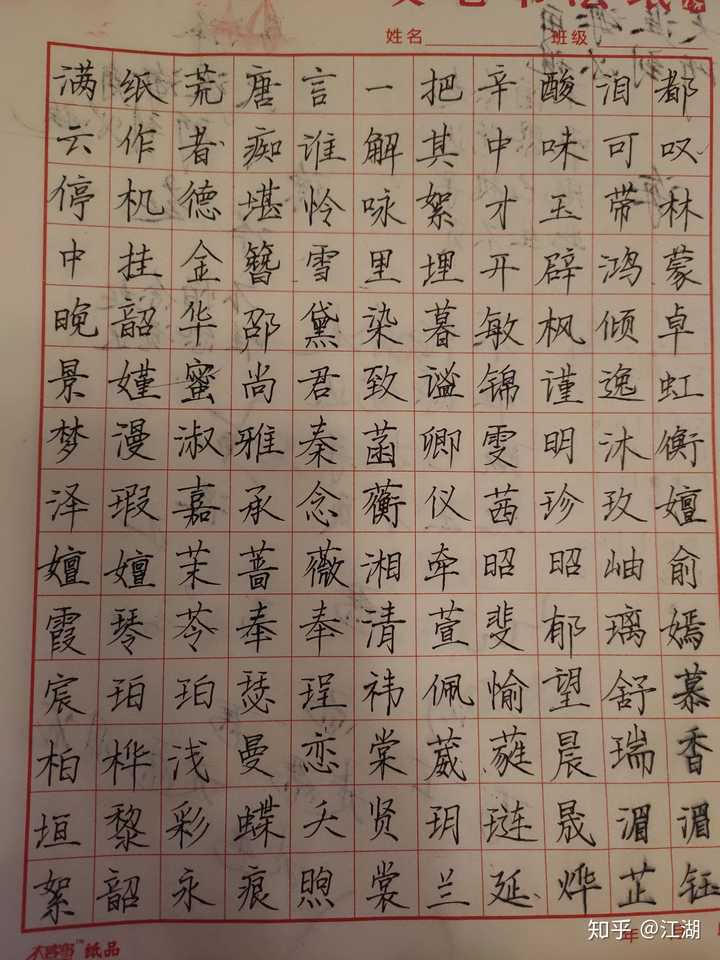 姓名 班级
满纸荒唐言一把辛酸泪都
云作者痴谁解其中味可叹
停机德堪怜咏絮才玉带林
中挂金簪雪里埋开辟鸿蒙
晚韶华邵黛染暮敏枫倾卓
景嫤蜜尚君致谧锦谨逸虹
梦漫淑雅秦菡卿雯明沐衡
泽瑕嘉承念蘅仪茜珍玫嬗
嬗嬗茉蔷薇湘牵昭昭岫俞
霞琴苓奉奉清萱斐郁璃嫣
宸珀珀瑟珵祎佩愉望舒慕
柏桦浅曼恋棠葳蕤晨瑞香
垣黎彩蝶夭贤玥琏晟湄湄
絮韶永痕煦裳兰延烨芷钰
年
纸品
知乎 @江湖